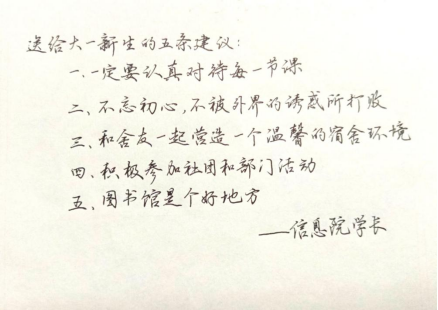 送给大一新生的五条建议:
一.一定要认真对待每一节课
二、不忘初心,不被外界的诱惑所打败
三、和舍友一起营造一个温馨的宿舍环境
四、积极参加社团和部门活动
五、图书馆是个好地方
——信息院学长